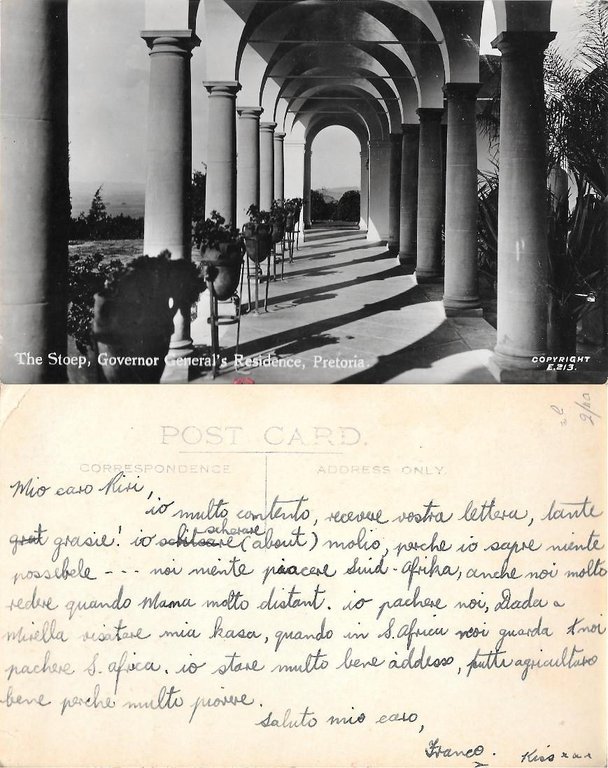 The Stoep, Governor General's Residence, Pretoria.
COPYRIGHT
E.213.
POST CARD.
CORRESPONDENCE
ADDRESS ONLY.
Mio caro Kiri,
io multo contento, recevere vostra lettera, tante
grat grasie! io scherare (about) molio, perche io sapre niente
possebele --- noi niente piacere Suid-Afrika, anche noi molto
redere quando Mama molto distant. io pachere noi, Dada a
Mirella visatare mia kasa, quando in S. Africa noi guarda & noi
pachere S. africa. io stare multo bene addesso, tutte agricultaro
bene perche multo piovere.
Saluto mio caro,
Franco.
Kiss x x x